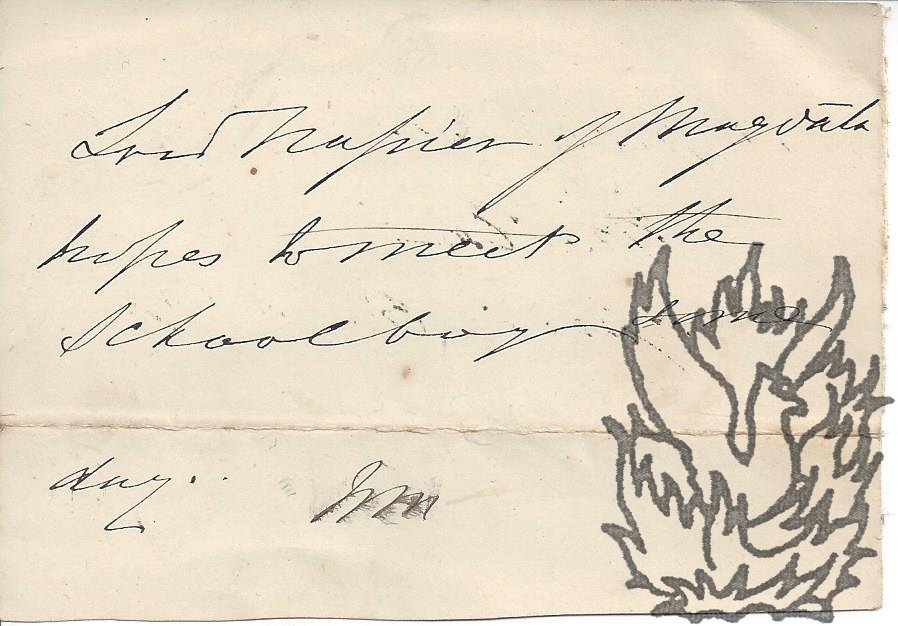 Lord Napier of Magdāla
hopes to meet the
Schoolboy some
day..